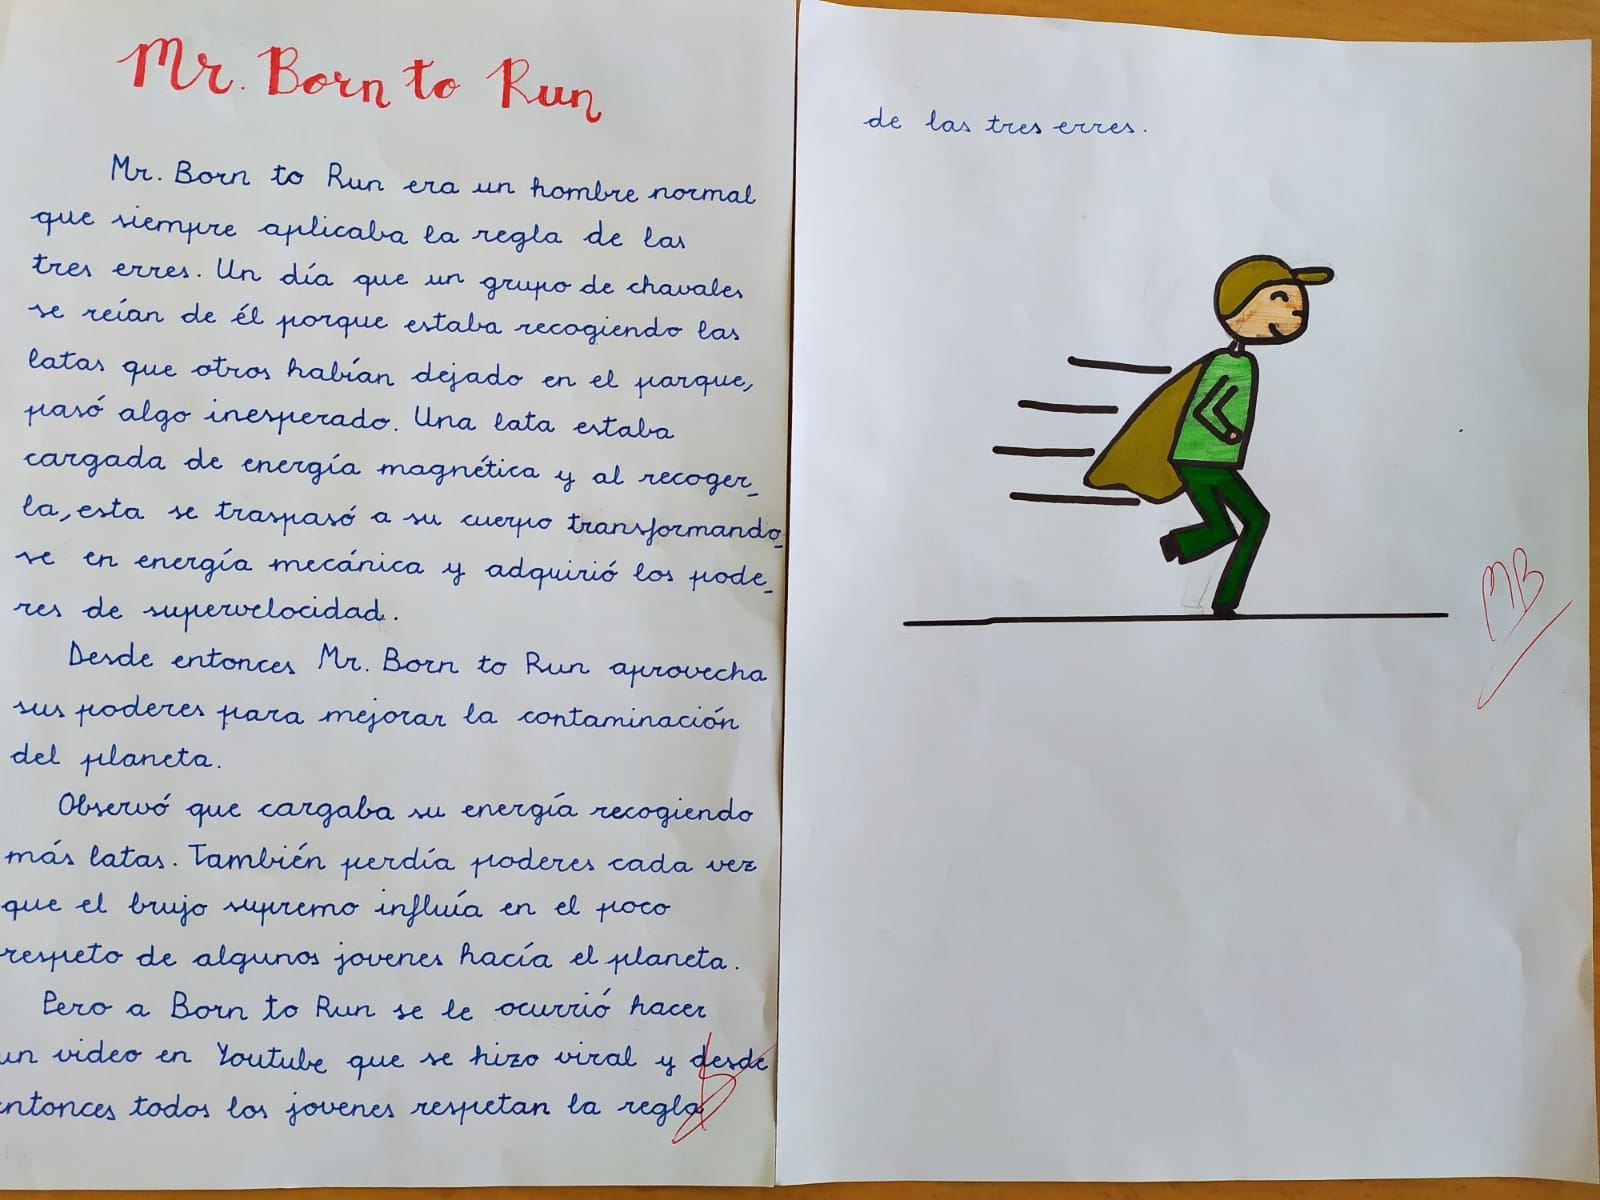 Mr. Born to Run
Mr. Born to Run era un hombre normal
que siempre aplicaba la regla de las
tres erres. Un día que un grupo de chavales
se reían de él porque estaba recogiendo las
latas que otros habían dejado en el parque,
pasó algo inesperado. Una lata estaba
cargada de energía magnética y al recoger_
la, esta se traspasó a su cuerpo transformando_
se en energía mecánica y adquirió los pode_
res de supervelocidad.
Desde entonces Mr. Born to Run aprovecha
sus poderes para mejorar la contaminación
del planeta.
Observó que cargaba su energía recogiendo
más latas. También perdía poderes cada vez
que el brujo supremo influía en el poco
respeto de algunos jovenes hacía el planeta.
Pero a Born to Run se le ocurrió hacer
un video en Youtube que se hizo viral y desde
entonces todos los jovenes respetan la regla
de las tres erres.
MB